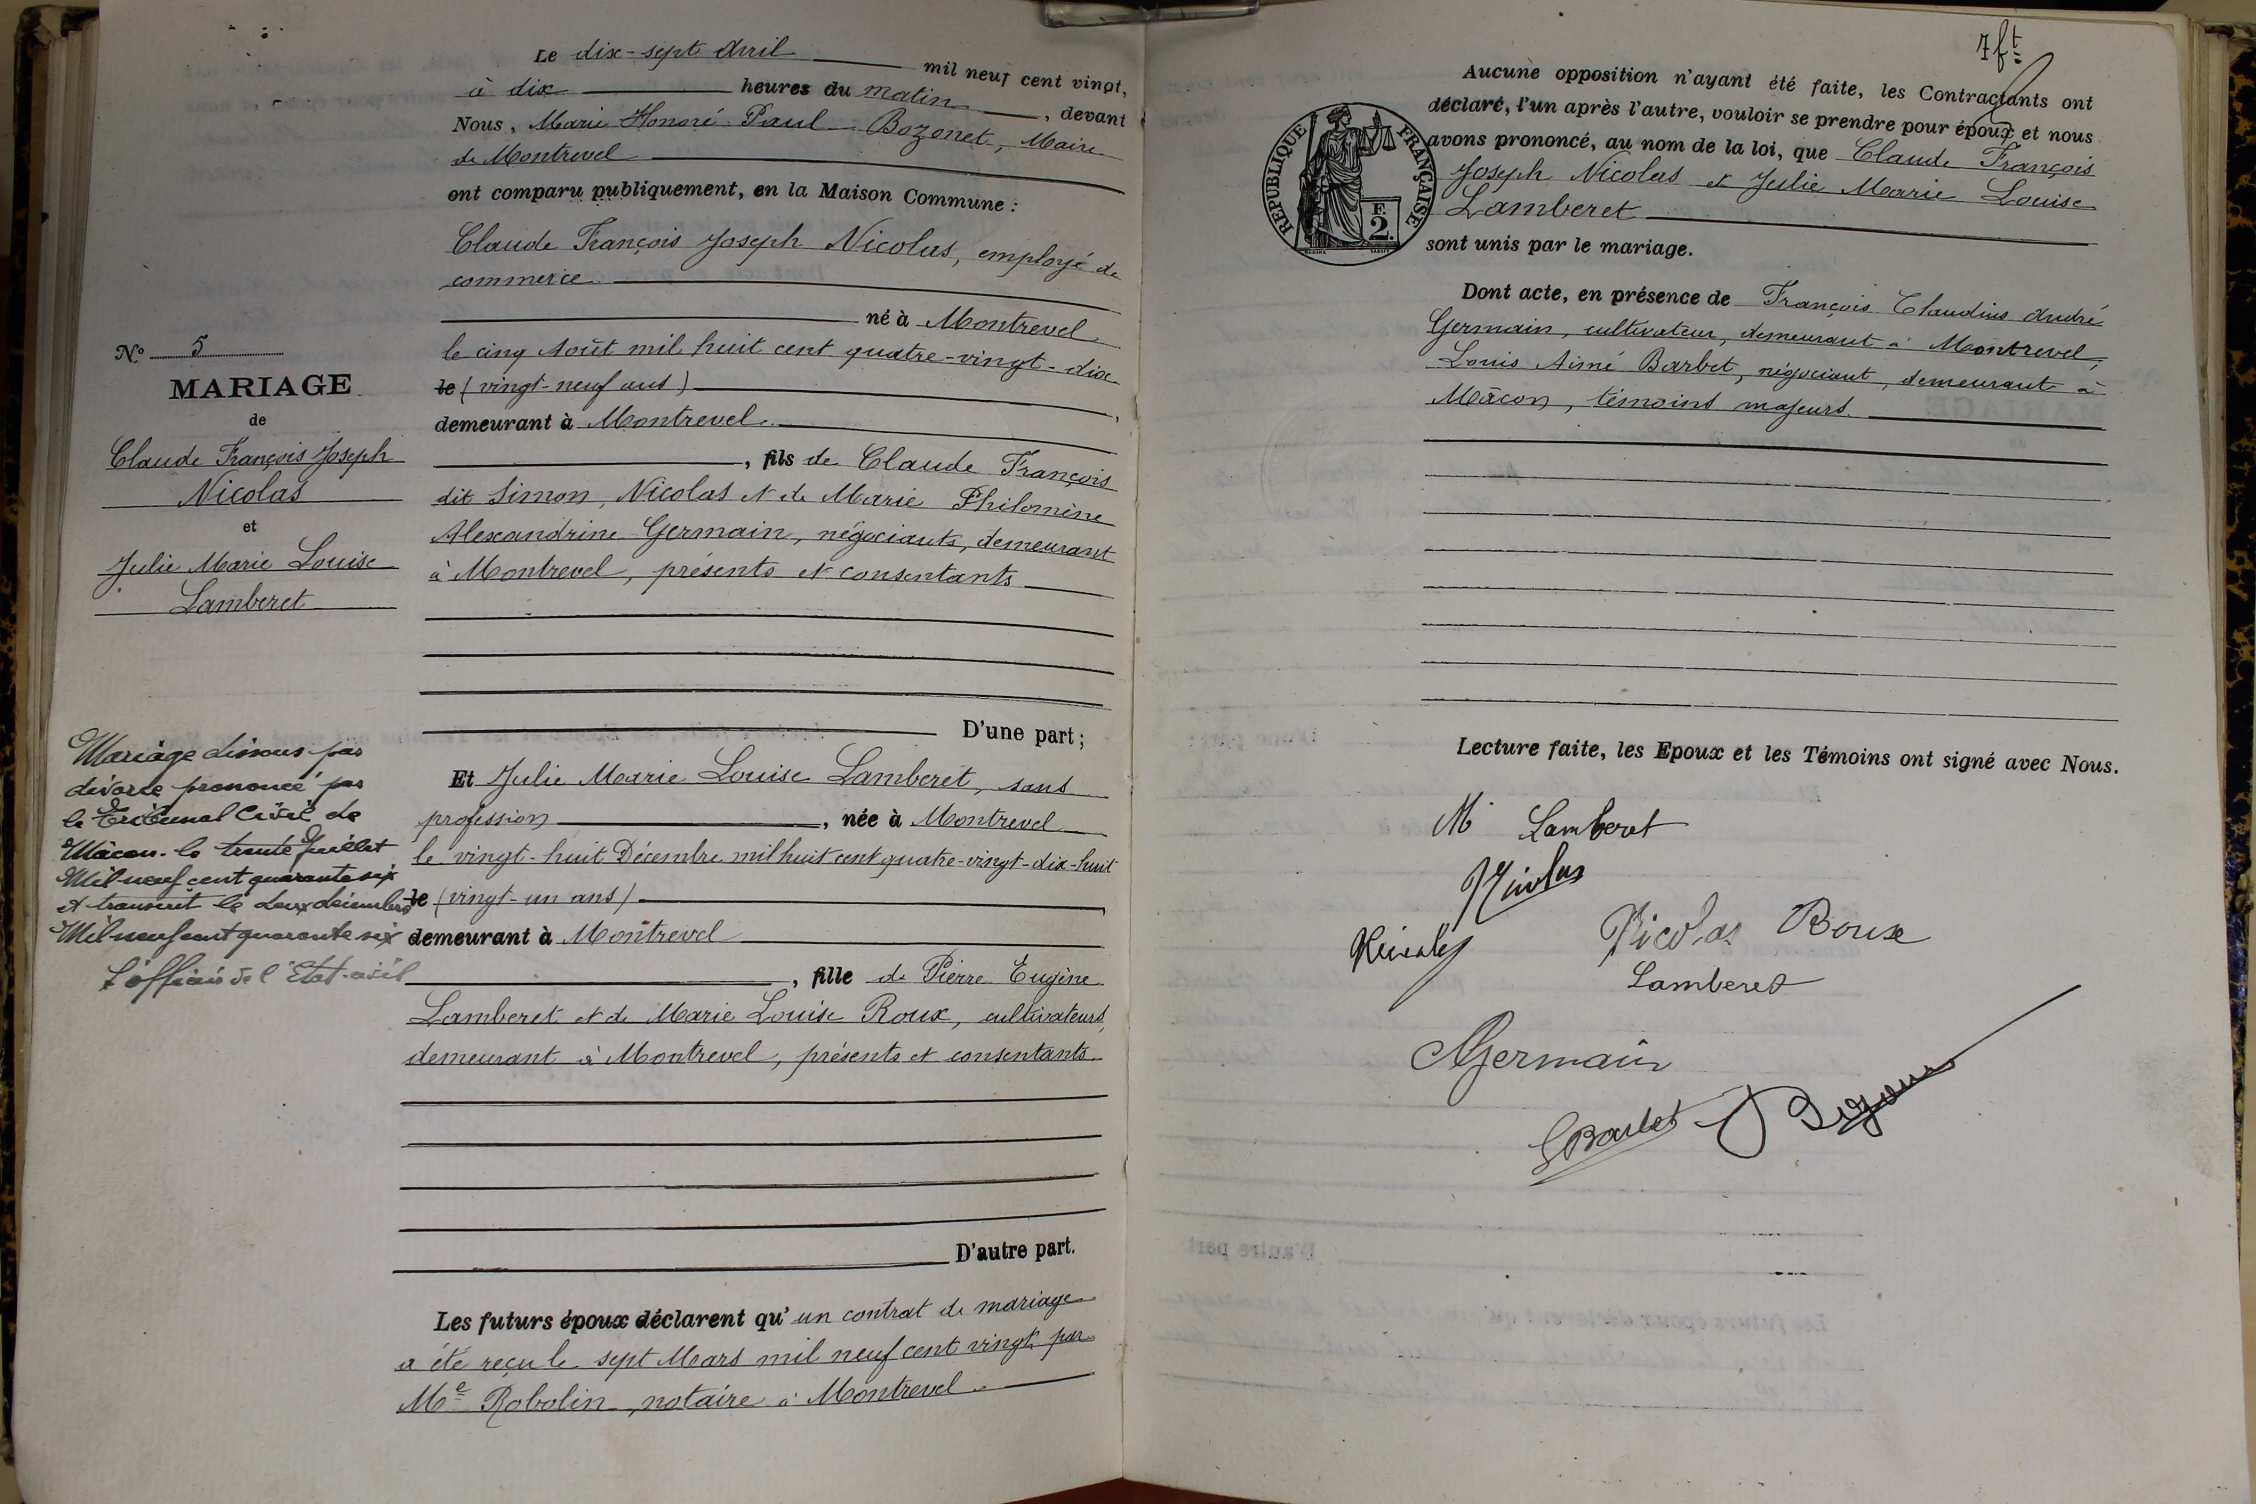 Le dix-sept Avril mil neuf cent vingt,
à dix heures du matin, devant
Nous, Marie Honoré Paul Bozonet, Maire
de Montrevel
ont comparu publiquement, en la Maison Commune :
Claude François Joseph Nicolas, employé de
commerce
né à Montrevel
le cinq Août mil huit cent quatre-vingt-dix
le (vingt-neuf ans),
demeurant à Montrevel
, fils de Claude François
dit Simon, Nicolas et de Marie Philomène
Alexandrine Germain, négociants, demeurant
à Montrevel, présents et consentants
D'une part ;
Et Julie Marie Louise Lamberet, sans
profession, née à Montrevel
le vingt-huit Décembre mil huit cent quatre-vingt-dix-huit
le (vingt-un ans),
demeurant à Montrevel
, fille de Pierre Eugène
Lamberet et de Marie Louise Roux, cultivateurs,
demeurant à Montrevel, présents et consentants
D'autre part.
Les futurs époux déclarent qu'un contrat de mariage
a été reçu le sept Mars mil neuf cent vingt par
Me Robolin, notaire à Montrevel
No 5
MARIAGE
de
Claude François Joseph
Nicolas
et
Julie Marie Louise
Lamberet
Mariage dissous par
divorce prononcé par
le Tribunal Civil de
Mâcon le trente Juillet
Mil neuf cent quarante six
et transcrit le deux décembre
Mil neuf cent quarante six
L'officier de l'Etat-civil
7 ft
Aucune opposition n'ayant été faite, les Contractants ont
déclaré, l'un après l'autre, vouloir se prendre pour époux et nous
avons prononcé, au nom de la loi, que Claude François
Joseph Nicolas et Julie Marie Louise
Lamberet
sont unis par le mariage.
REPUBLIQUE FRANÇAISE
F. 2.
Dont acte, en présence de François Claudius André
Germain, cultivateur, demeurant à Montrevel,
Louis Aimé Barbet, négociant, demeurant à
Mâcon, témoins majeurs.
Lecture faite, les Epoux et les Témoins ont signé avec Nous.
M Lamberet
Nicolas
Nicolas
Nicolas Roux
Lamberet
AGermain
LBarbet
Bozonet